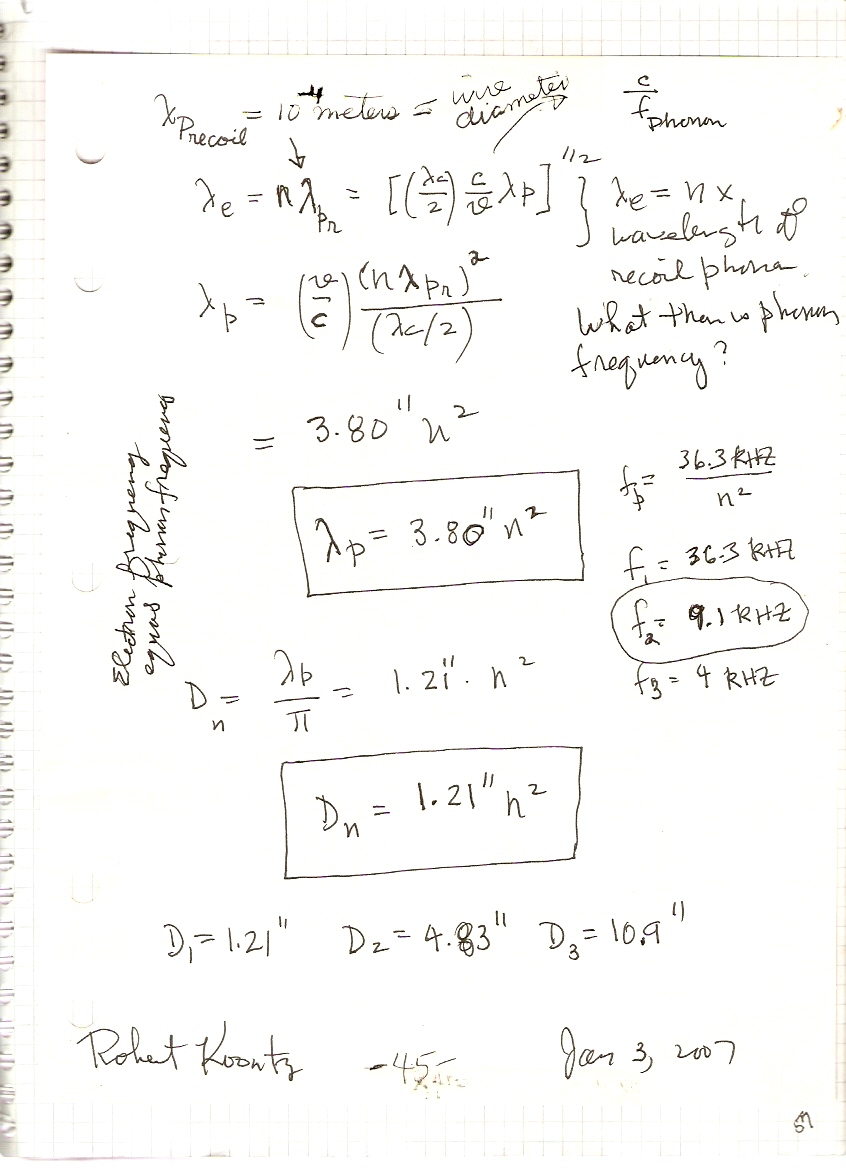 λ_Precoil = 10^-4 meters = wire diameter
c / f_phonon
λ_e = n λ_pr = [(λc/2) c/v λp]^1/2 } λe = n x wavelength of recoil phonon.
What then is phonon frequency?
λ_p = (v/c) (n λ_pr)^2 / (λc/2)
= 3.80" n^2
λ_p = 3.80" n^2
Electron frequency
equals phonon frequency
f_p = 36.3 KHZ / n^2
f_1 = 36.3 KHZ
f_2 = 9.1 KHZ
f_3 = 4 KHZ
D_n = λp / π = 1.21" · n^2
D_n = 1.21" n^2
D_1 = 1.21" D_2 = 4.83" D_3 = 10.9"
Robert Koontz -45- Jan 3, 2007